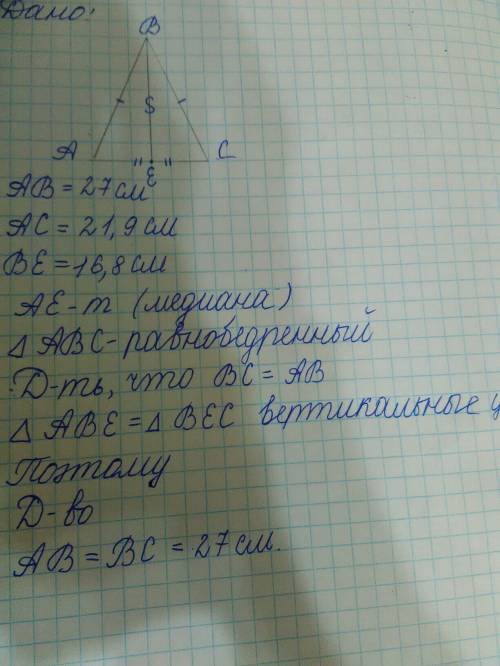 Дано:
B
S
A " E " C
AB = 27 см
AC = 21,9 см
BE = 16,8 см
AE - m (медиана)
△ ABC - равнобедренный
Д-ть, что BC = AB
△ ABE = △ BEC вертикальные
Поэтому
Д-во
AB = BC = 27 см.